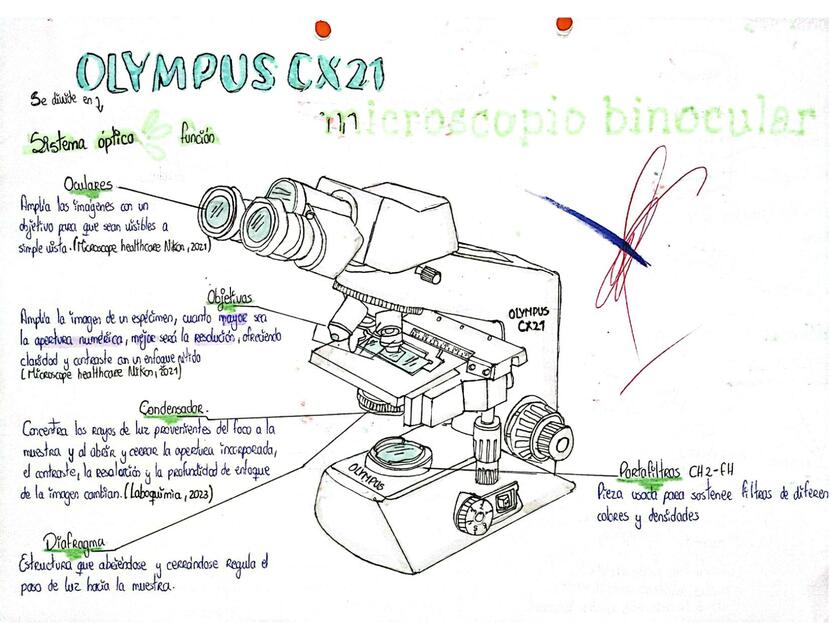 OLYMPUS CX21
microscopio binocular
Se divide en
Sistema óptico función
Oculares
Amplía las imágenes con un
objetivo para que sean visibles a
simple vista. (Microscope healthcare Nikon, 2021)
Objetivos
Amplía la imagen de un espécimen, cuanto mayor sea
la apertura numérica, mejor será la resolución, ofreciendo
claridad y contraste con un enfoque nítido
(Microscope healthcare Nikon, 2021)
OLYMPUS
CX21
Condensador.
Concentra los rayos de luz provenientes del foco a la
muestra y al abrir y cerrar la apertura incorporada,
el contraste, la resolución y la profundidad de enfoque
de la imagen cambian. (Laboquimia, 2023)
OLYMPUS
Portafiltros CH2-FH
Pieza usada para sostener filtros de diferen
colores y densidades
Diafragma
Estructura que abriéndose y cerrándose regula el
paso de luz hacia la muestra.